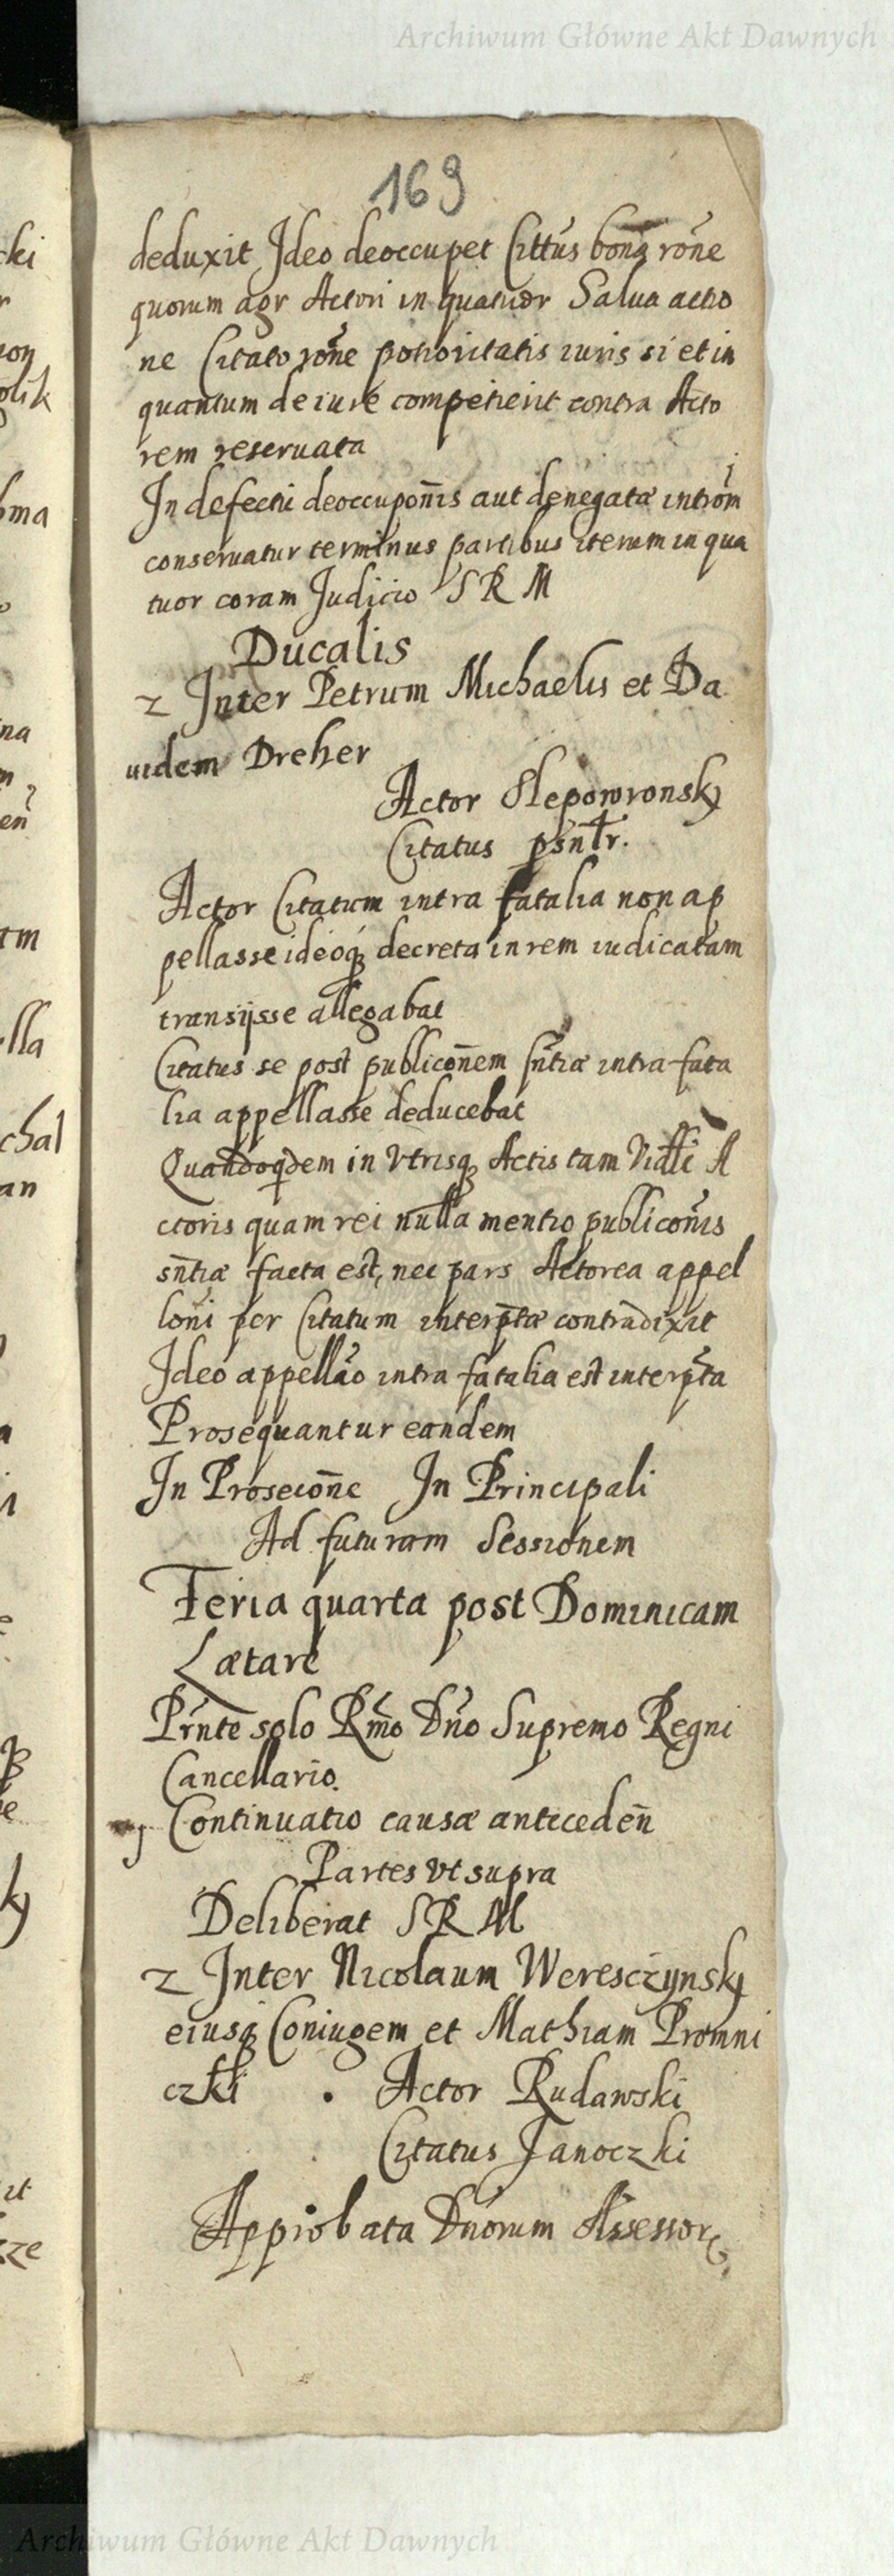 Archiwum Główne Akt Dawnych
169
deduxit Ideo deoccupet Cittús bona róne
quorum agr Actori in quatuor Salua actio
ne Citato róne potioritatis iuris si et in
quantum de iure competierit contra Acto
rem reseruata
In defectu deoccupon̄is aut denegatæ introm̄
conseruatur terminus partibus iterum in qua
tuor coram Judicio S R M
Ducalis
2 Inter Petrum Michaelis et Da
uidem Dreher
Actor Slepowronsky
Citatus psntr.
Actor Citatum intra fatalia non ap
pellasse ideoq; decreta in rem iudicatam
transijsse allegabat
Citatus se post publicon̄em sn̄tiæ intra fata
lia appellasse deducebat
Quandoqdem in Vtrisq; Actis tam A
ctoris quam rei nulla mentio publicon̄is
sn̄tiæ facta est, nec pars Actorea appel
loni per Citatum interp̄tæ contradixit
Ideo appellao intra fatalia est interp̄ta
Prosequantur eandem
In Prosecon̄e In Principali
Ad futuram Sessionem
Feria quarta post Dominicam
Lætare
Prnte solo Rm̄o Dn̄o Supremo Regni
Cancellario.
j Continuatio causæ anteceden̄
Partes vt supra
Deliberat S R M
2 Inter Nicolaum Weresczynsky
eiusq; Coniugem et Mathiam Promni
czki . Actor Rudawski
Citatus Janoczki
Approbata Dnorum Assessor
Archiwum Główne Akt Dawnych